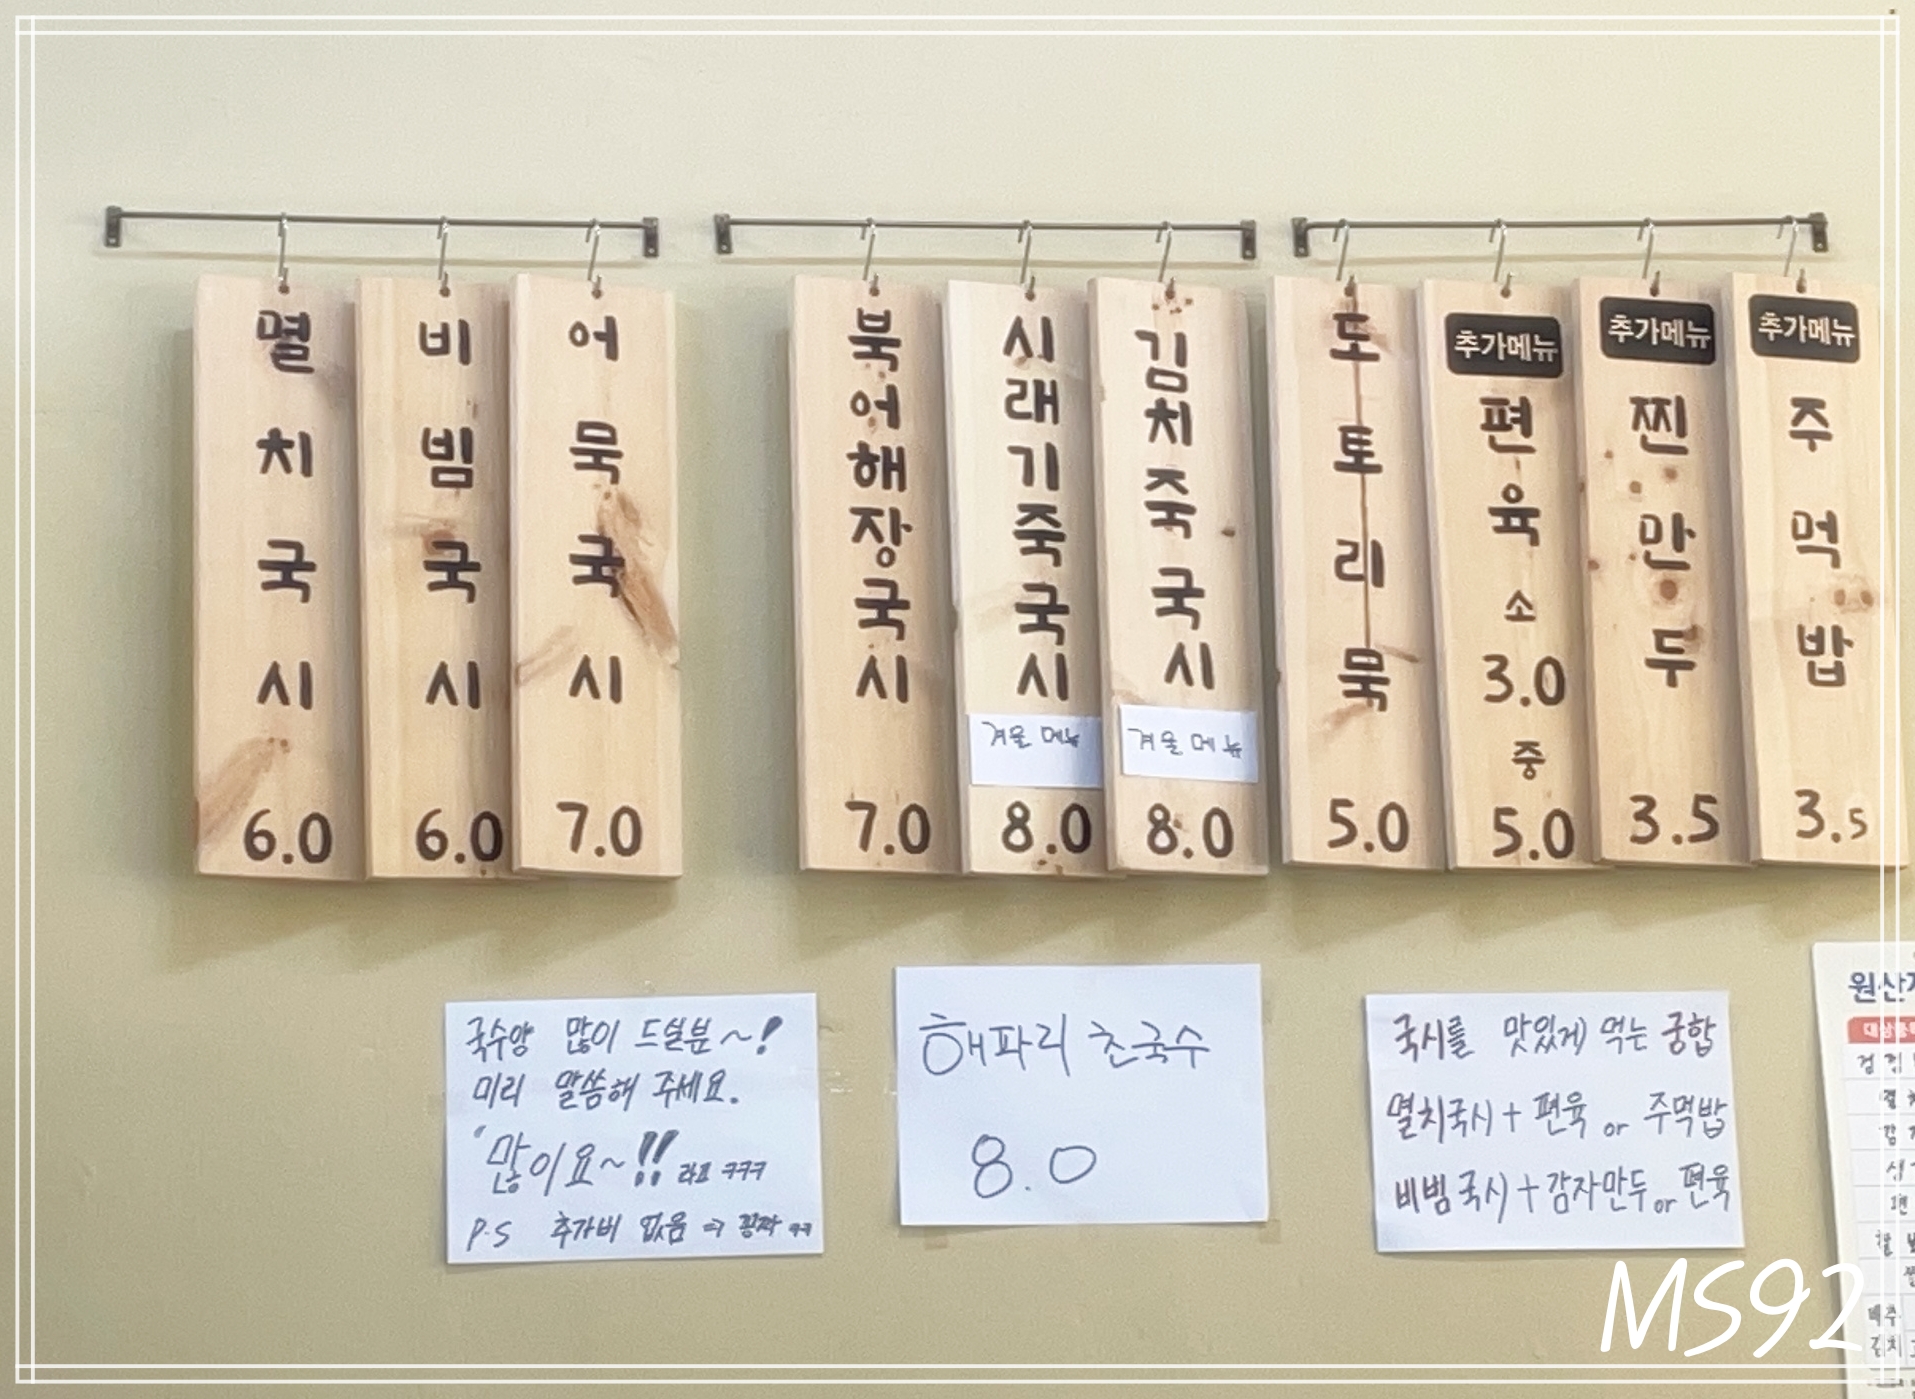 멸치국시
6.0
비빔국시
6.0
어묵국시
7.0
북어해장국시
7.0
시래기죽국시
겨울 메뉴
8.0
김치죽국시
겨울 메뉴
8.0
도토리묵
5.0
추가메뉴
편육
소
3.0
중
5.0
추가메뉴
찐만두
3.5
추가메뉴
주먹밥
3.5
국수양 많이 드실분~!
미리 말씀해 주세요.
"많이요~!! 라고 ㅋㅋㅋ
P.S 추가비 없음 ⇒ 꽁짜 ㅋㅋ
해파리 촌국수
8.0
국시를 맛있게 먹는 궁합
멸치국시 + 편육 or 주먹밥
비빔국시 + 감자만두 or 편육
원산지
MS92